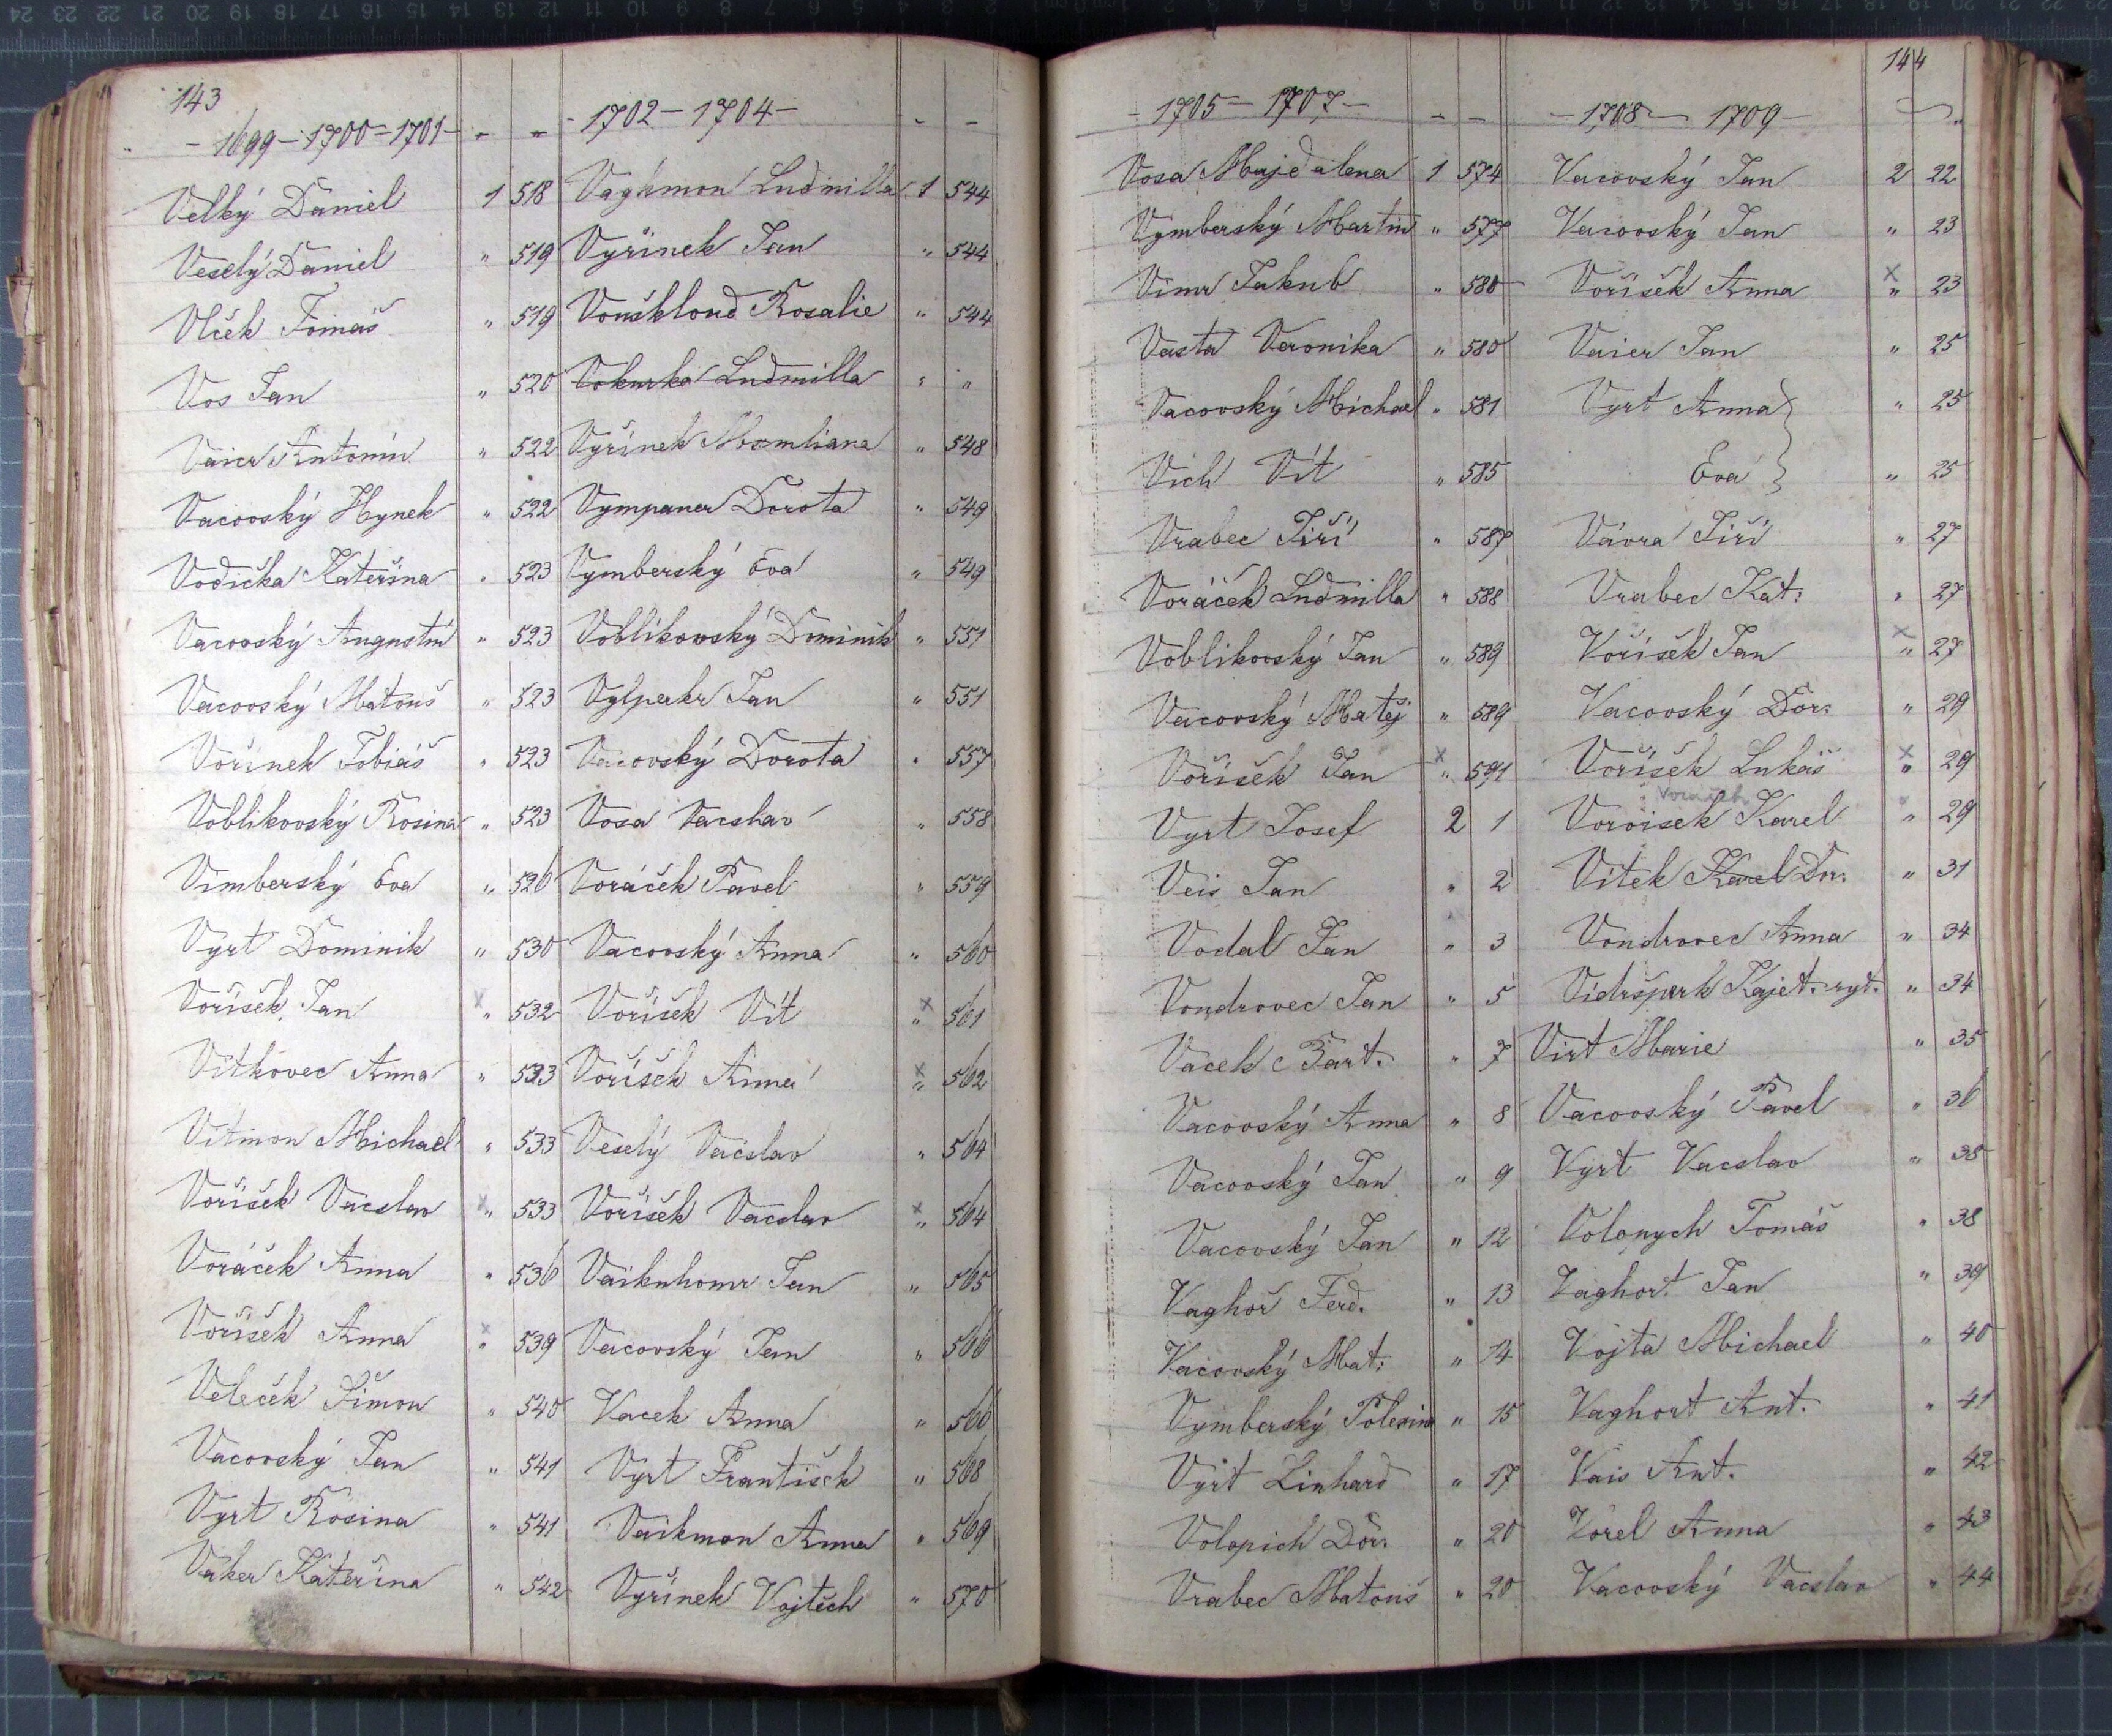 143
- 1699 - 1700 - 1701 - " "
Velký Daniel 1 518
Veselý Daniel " 519
Vlček Tomáš " 519
Vos Jan " 520
Vaier Antonín " 522
Vacovský Hynek " 522
Vodička Kateřina " 523
Vacovský Augustin " 523
Vacovský Matouš " 523
Vořínek Tobiáš " 523
Voblikovský Rosina " 523
Vimberský Eva " 526
Výrt Dominik " 530
Voříšek Jan x " 532
Vitkovec Anna " 533
Vitmon Michael " 533
Voříšek Vacslav x " 533
Voráček Anna " 536
Voříšek Anna x " 539
Veleček Šimon " 540
Vacovský Jan " 541
Vyrt Rosina " 541
Vaker Kateřina " 542
- 1702 - 1704 - - -
Vaghmon Ludmilla 1 544
Vyřinek Jan " 544
Vouškloud Rosalie " 544
Vokurka Ludmilla " "
Vyřínek " 548
Vympaner Dorota " 549
Vymberský Eva " 549
Voblikowský Dominik " 551
Vylperkr Jan " 551
Vacovský Dorota " 557
Vosa Vacslav " 558
Voráček Pavel " 559
Vacovský Anna " 560
Voříšek Vít x " 561
Voříšek Anna x " 562
Veselý Vácslav " 564
Voříšek Vacslav x " 564
Vaiknhomr Jan " 565
Vacovský Jan " 566
Vacek Anna " 566
Vyrt František " 568
Vaikmon Anna " 569
Vyřínek Vojtěch " 570
- 1705 - 1707 - - -
Vosa Majdalena 1 574
Vymberský Martin " 577
Vimr Jakub " 580
Vasta Veronika " 580
Vacovský Michael " 581
Vich Vít " 585
Vrabec Jiří " 587
Voráček Ludmilla " 588
Voblikovský Jan " 589
Vacovský Matěj " 589
Voříšek Jan x " 591
Vyrt Josef 2 1
Veis Jan " 2
Vodal Jan " 3
Vondrovec Jan " 5
Vacek Bart. " 7
Vacovský Anna " 8
Vacovský Jan " 9
Vacovský Jan " 12
Vaghoř Ferd. " 13
Vacovský Mat: " 14
Vymberský Polexina " 15
Výrt Linhard " 17
Volopich Dor. " 20
Vrabec Matouš " 20
144
- 1708 - 1709 -
Vacovský Jan 2 22
Vacovský Jan " 23
Voříšek Anna x " 23
Vaier Jan " 25
Vyrt Anna } " 25
Eva } " 25
Vávra Jiří " 27
Vrabec Kat: " 27
Voříšek Jan x " 27
Vacovský Dor: " 29
Voříšek Lukáš x " 29
Voráček
Voroisek Karel x " 29
Vítek Karel Dor. " 31
Vondrovec Anna " 34
Vidršperk Kajet. ryt. " 34
Virt Marie " 35
Vacovský Pavel " 36
Vyrt Vacslav " 38
Volonych Tomáš " 38
Vaghort Jan " 39
Vojta Michael " 40
Vaghort Ant. " 41
Vais Ant. " 42
Vorel Anna " 43
Vacovský Vacslav " 44